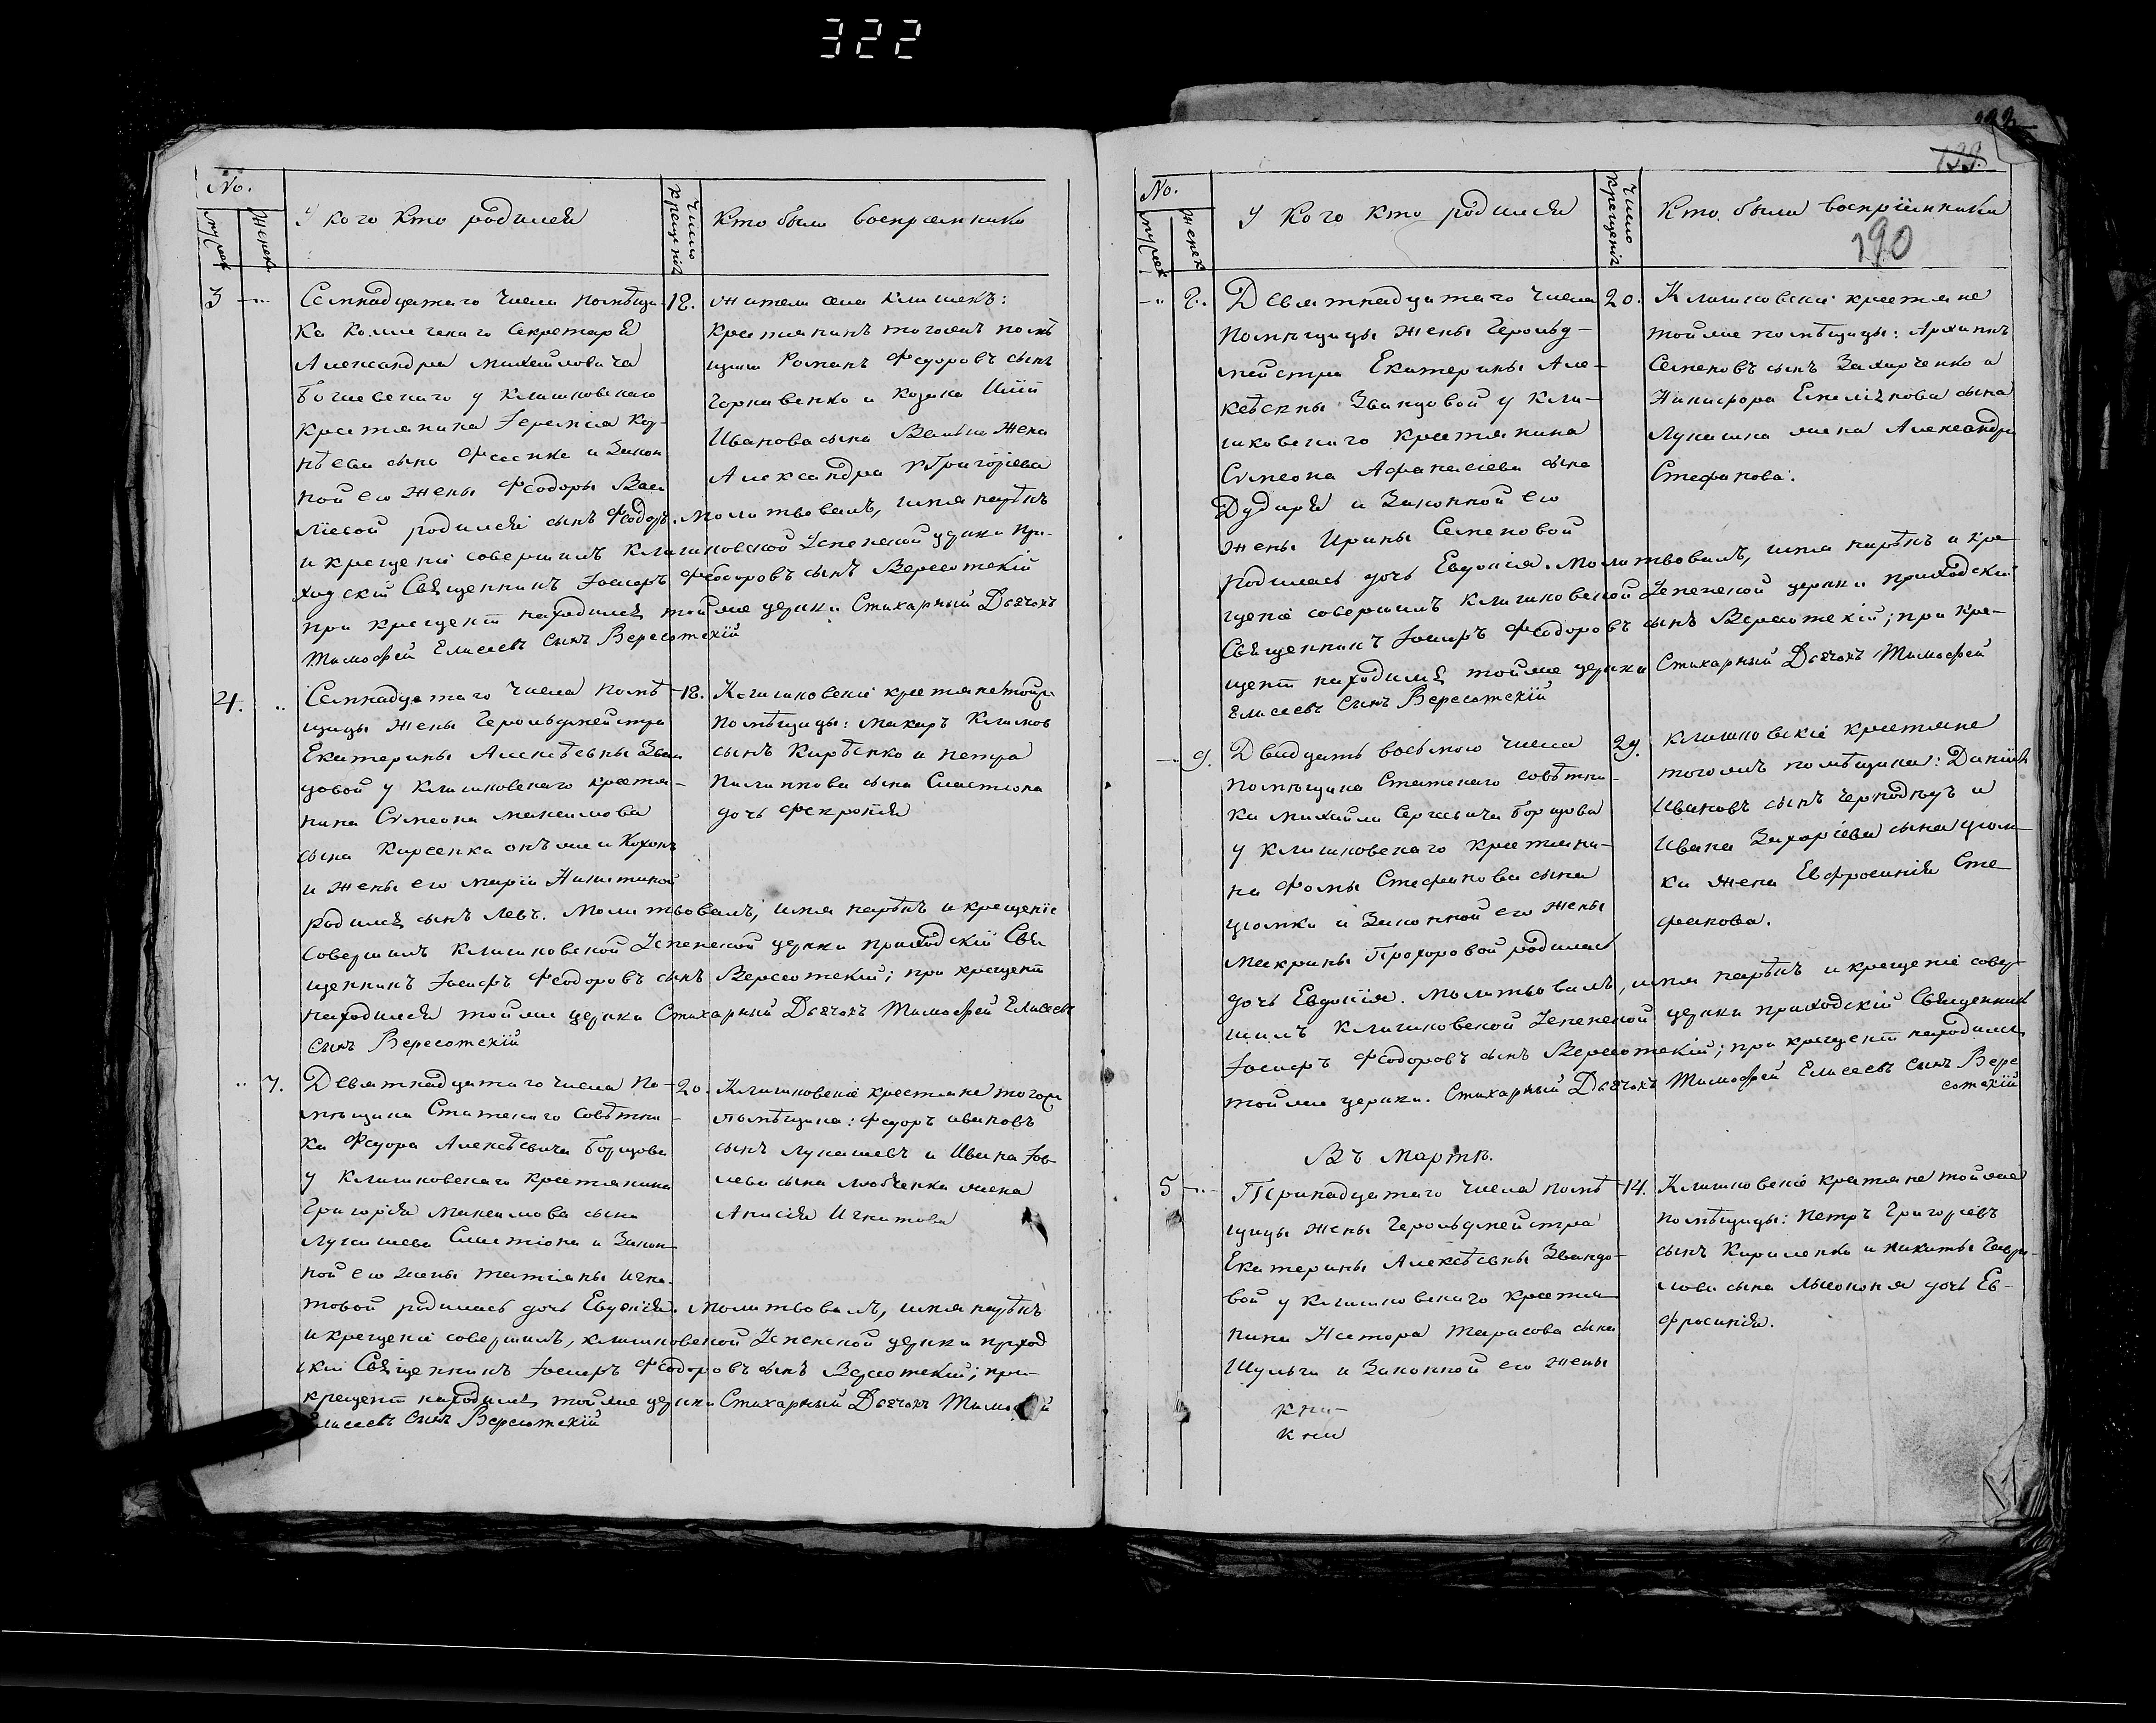 322
No.
муж. женск.
У кого кто родился
Число крещенія
Кто были воспріемники
3
Семнадцатаго числа помѣщи-
ка коллежскаго Секретаря
Александра Михайловича
у Клишковскаго
крестьянина Іереміи
сына и Закон
ной его жены Феодоры Васи
ліевой родился сынъ Феодоръ. Молитвовалъ, имя нарѣкъ
и крещеніе совершилъ Клишковской Успенской церкви при-
ходскій Священникъ Іосифъ Феодоровъ сынъ Вересотскій
при крещеніи находился тойже церкви Стихарный Дьячокъ
Тимофей Елисеевъ Сынъ Вересотскій
18.
жители села Клишекъ:
крестьянинъ тогожъ помѣ
щика Романъ Федоровъ сынъ
и козака
Иванова сына жена
Александра Григоріева
4.
Семнадцатаго числа помѣ
щицы жены Герольдмейстра
Екатерины Алексѣевны Зван
цовой у Клишковскаго крестья-
нина Симеона Максимова
сына Кирѣенка онъ же и Кохонъ
и жены его Маріи Никитиной
родился сынъ Левъ. Молитвовалъ, имя нарѣкъ и крещеніе
совершилъ Клишковской Успенской церкви приходскій Свя
щенникъ Іосифъ Феодоровъ сынъ Вересотскій; при крещеніи
находился тойже церкви Стихарный Дьячокъ Тимофей Елисеевъ
сынъ Вересотскій
18.
Клишковскіе крестьяне тойже
помѣщицы: Макаръ Климов
сынъ Кирѣенко и Петра
Филиппова сына Сластiона
дочь Февронія
7.
Девятнадцатаго числа По-
мѣщика Статскаго Совѣтни-
ка Федора Алексѣевича Борщова
у Клишковскаго Крестьянина
Григорія Максимова сына
Лукашева Сластіона и Закон
ной его жены Татіаны Игна-
товой родилась дочь Евдокія. Молитвовалъ, имя нарѣкъ
и крещеніе совершилъ, Клишковской Успенской церкви приход
скій Священникъ Іосифъ Феодоровъ сынъ Вересотскій; при
крещеніи находился тойже церкви Стихарный Дьячокъ Тимофей
Елисеевъ Сынъ Вересотскій
20.
Клишковскіе крестьяне тогоже
помѣщика: Федоръ Ивановъ
сынъ Лукашевъ и Ивана Іов-
лева сына жена
Анисія Игнатова
133.
190
No.
муж. женск.
У кого кто родился
Число крещенія
Кто были воспріемники
8.
Девятнадцатаго числа
помѣщицы жены Герольд-
мейстра Екатерины Але-
ксѣевны Званцовой у Кли-
шковскаго крестьянина
Симеона Афанасіева сына
Дударя и Законной его
жены Ирины Семеновой
родилась дочь Евдокія. Молитвовалъ, имя нарѣкъ и кре-
щеніе совершилъ Клишковской Успенской церкви приходскій
Священникъ Іосифъ Феодоровъ сынъ Вересотскій; при кре-
щеніи находился тойже церкви Стихарный Дьячокъ Тимофей
Елисеевъ Сынъ Вересотскій
20.
Клишковскіе крестьяне
тойже помѣщицы: Архипъ
Семеновъ сынъ Захарченко и
Никифора сына
Лукашка жена Александра
Стефанова.
9.
Двадцать восьмого числа
Помѣщика Статскаго совѣтни-
ка Михайла Сергѣевича Борщова
у Клишковскаго крестьяни-
на Фомы Стефанова сына
Цюмки и Законной его жены
Макрины Прохоровой родилась
дочь Евдокія. Молитвовалъ, имя нарѣкъ и крещеніе совер-
шилъ Клишковской Успенской церкви приходскій Священникъ
Іосифъ Феодоровъ сынъ Вересотскій; при крещеніи находился
тойже церкви. Стихарный Дьячокъ Тимофей Елисеевъ Сынъ Вере
сотскій
29.
Клишковскіе крестьяне
тогожъ помѣщика: Даніилъ
Ивановъ сынъ и
Ивана Захаріева сына Цюм-
ки жена Евфросинія Сте
фанова.
Въ Мартѣ.
5
Тринадцатаго числа помѣ
щицы жены Герольдмейстра
Екатерины Алексѣевны Званцо-
вой у Клишковскаго крестья
нина Нестора Тарасова сына
Шульги и Законной его жены
14.
Клишковскіе крестьяне тойже
помѣщицы: Петръ Григоріевъ
сынъ Кириленко и Никиты Гаври-
лова сына дочь Ев-
фросинія.